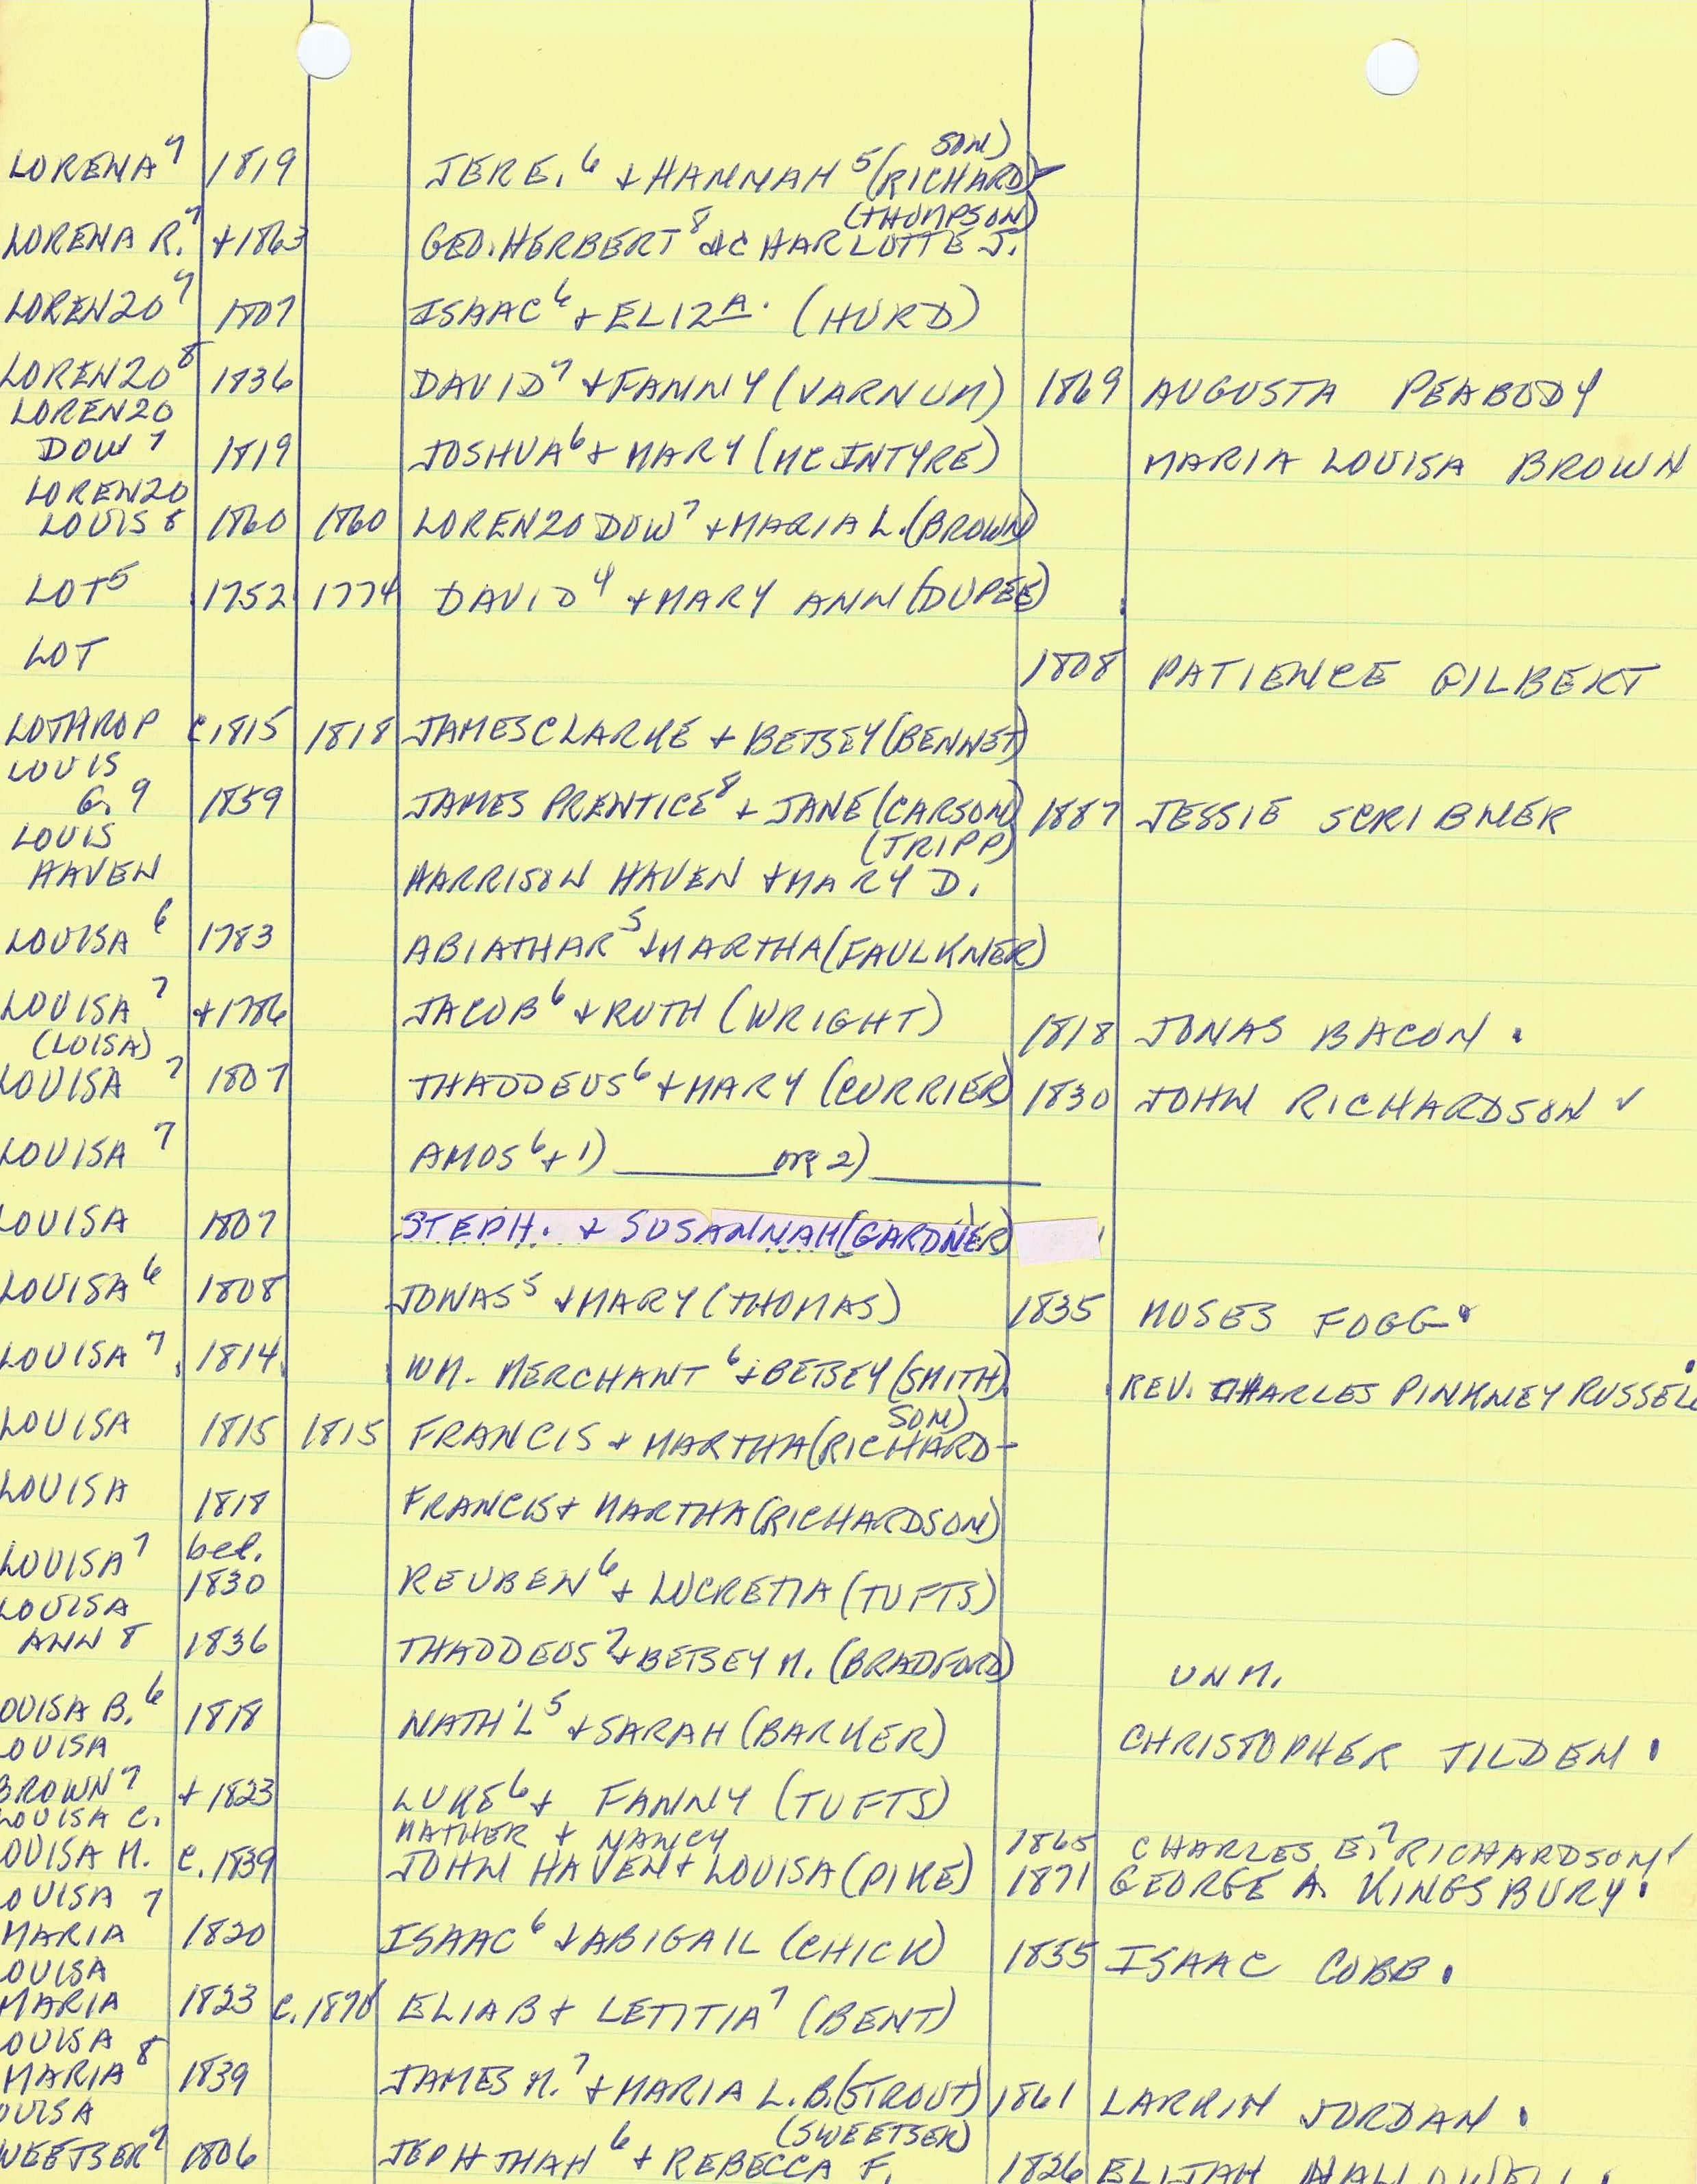 SON)
LORENA 7 1819 JERE. 6 + HANNAH 5 (RICHARD-
(THOMPSON)
LORENA R. 7 +1863 GEO. HERBERT 8 + CHARLOTTE J.
LORENZO 7 1807 ISAAC 6 + ELIZA. (HURD)
LORENZO 8 1836 DAVID 7 + FANNY (VARNUM) 1869 AUGUSTA PEABODY
LORENZO
DOW 7 1819 JOSHUA 6 + MARY (MCINTYRE) MARIA LOUISA BROWN
LORENZO
LOUIS 8 1860 1860 LORENZO DOW 7 + MARIA L. (BROWN)
LOT 5 1752 1774 DAVID 4 + MARY ANN (DUPEE)
LOT 1808 PATIENCE GILBERT
LOTHROP c.1815 1818 JAMES CLARKE + BETSEY (BENNET)
LOUIS
G. 9 1859 JAMES PRENTICE 8 + JANE (CARSON) 1887 JESSIE SCRIBNER
LOUIS (TRIPP)
HAVEN HARRISON HAVEN + MARY D.
LOUISA 6 1783 ABIATHAR 5 + MARTHA (FAULKNER)
LOUISA 7 +1786 JACOB 6 + RUTH (WRIGHT) 1818 JONAS BACON .
(LOISA)
LOUISA 7 1807 THADDEUS 6 + MARY (CURRIER) 1830 JOHN RICHARDSON ✓
LOUISA 7 AMOS 6 + 1) ________ or 2) ________
LOUISA 1807 STEPH. + SUSANNAH (GARDNER)
LOUISA 6 1808 JONAS 5 + MARY (THOMAS) 1835 MOSES FOGG .
LOUISA 7 1814 WM. MERCHANT 6 + BETSEY (SMITH) REV. CHARLES PINKNEY RUSSELL .
SON)
LOUISA 1815 1815 FRANCIS + MARTHA (RICHARD-
LOUISA 1818 FRANCIS + MARTHA (RICHARDSON)
LOUISA 7 bef.
1830 REUBEN 6 + LUCRETIA (TUFTS)
LOUISA
ANN 8 1836 THADDEUS 7 + BETSEY M. (BRADFORD) UNM.
OUISA B. 6 1818 NATH'L 5 + SARAH (BARKER) CHRISTOPHER TILDEN .
OUISA
BROWN 7 + 1823 LUKE 6 + FANNY (TUFTS)
LOUISA C. MATHER + NANCY 1865 CHARLES E. 7 RICHARDSON ✓
OUISA M. c. 1839 JOHN HAVEN + LOUISA (PIKE) 1871 GEORGE A. KINGSBURY .
OUISA 7
MARIA 1820 ISAAC 6 + ABIGAIL (CHICK) 1855 ISAAC COBB .
OUISA
MARIA 1823 c. 1870 ELIAB + LETITIA 7 (BENT)
OUISA
MARIA 8 1839 JAMES M. 7 + MARIA L.B. (STROUT) 1861 LARKIN JORDAN .
OUISA (SWEETSER)
WEETSER 7 1806 JEPHTHAH 6 + REBECCA F. 1826 ELIJAH